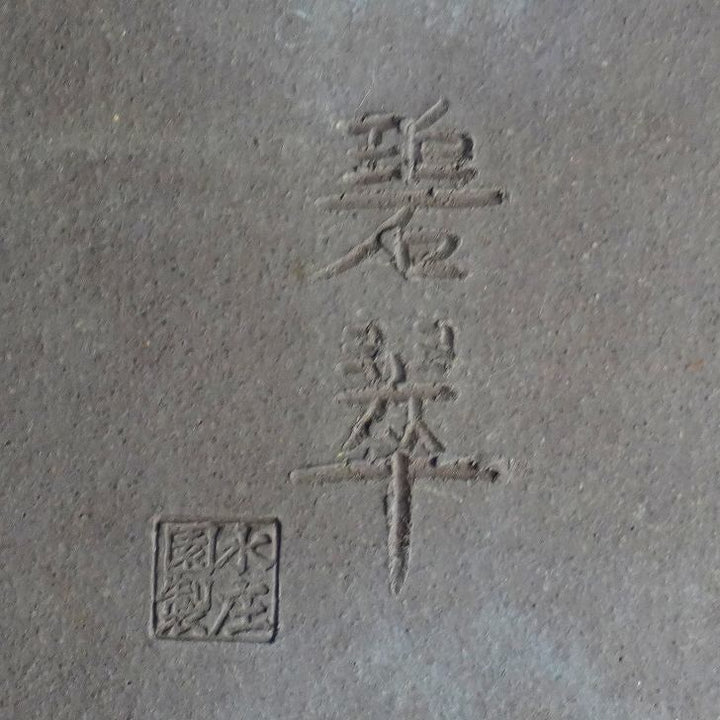 碧翠
水庄
園製